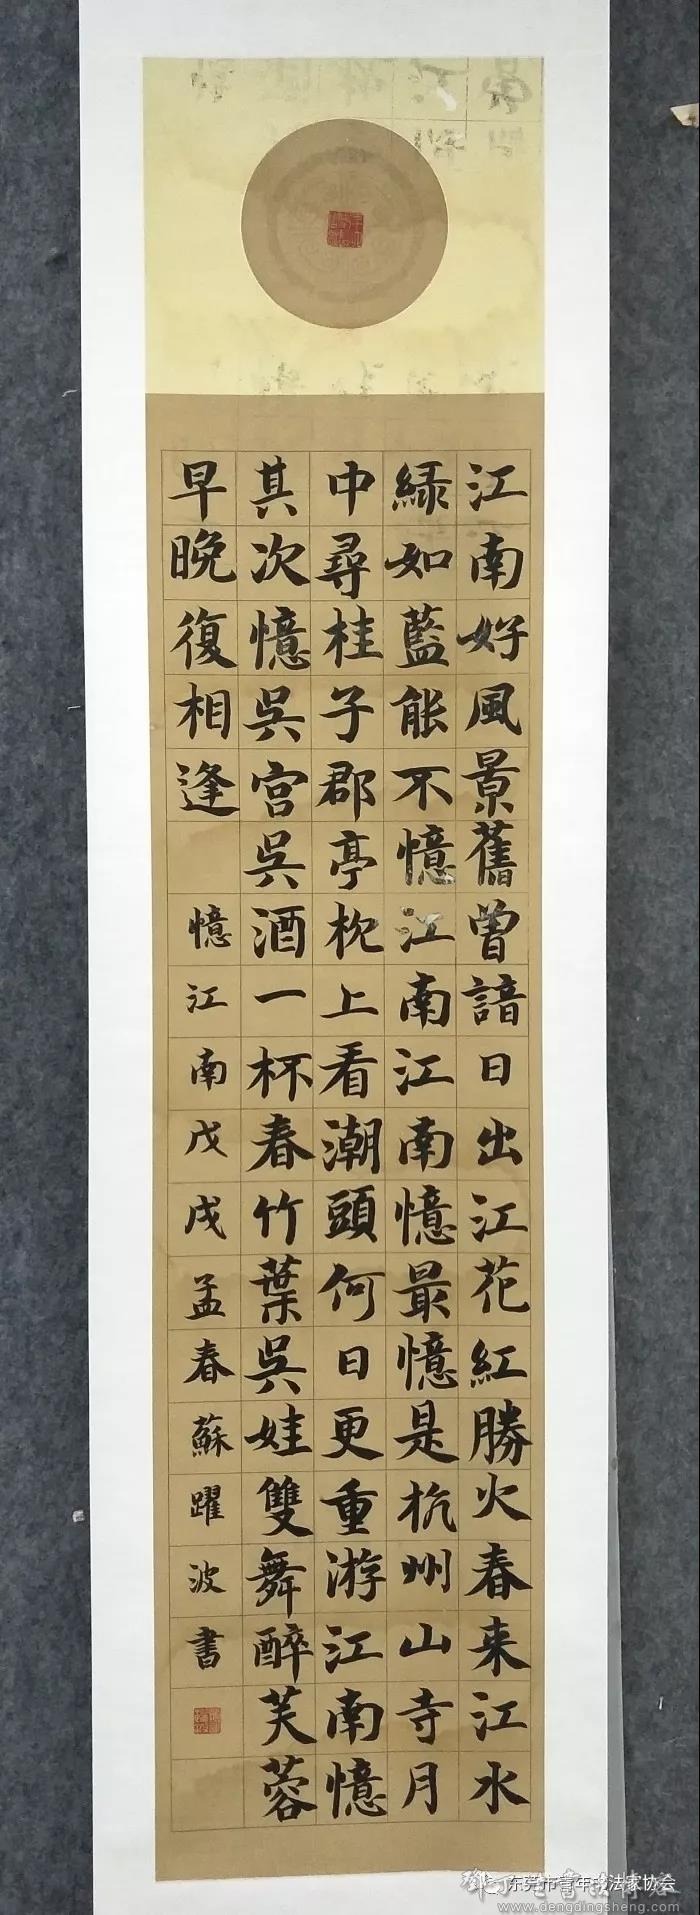 江南好風景舊曾諳日出江花紅勝火春来江水
綠如藍能不憶江南江南憶最憶是杭州山寺月
中尋桂子郡亭枕上看潮頭何日更重游江南憶
其次憶吳宮吳酒一杯春竹葉吳娃雙舞醉芙蓉
早晚復相逢
憶江南戊戌孟春蘇躍波書
东莞市青年书法家协会
www.dengdingsheng.com